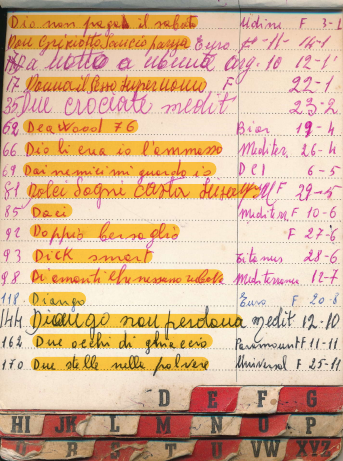 Dio non paga il sabato Udine F 3-1
Don Chisciotte Sancio panza Euro F 14-1
notte a 10 12-1
17 Donna il sesso superuomo F 22-1
35 Due crociate medit 23-2
62 Deawood 76 Bior 19-4
66 Dio li crea io l'ammasso Mediter. 26-4
69 Dai nemici mi guardo io DCI 6-5
81 Dolci sogni casta Susanna F 29-5
85 Daci Mediter. F 10-6
92 Doppio bersaglio F 27-6
93 Dick smart Titanus 28-6
98 Diamanti che nessuno rubava Mediterranea 12-7
118 Django Euro F 20-8
144 Django non perdona medit 12-10
162 Due occhi di ghiaccio Paramount F 11-11
170 Due stelle nella polvere Universal F 25-11
D E F G
HI JK L M N O P
R S T U VW XYZ